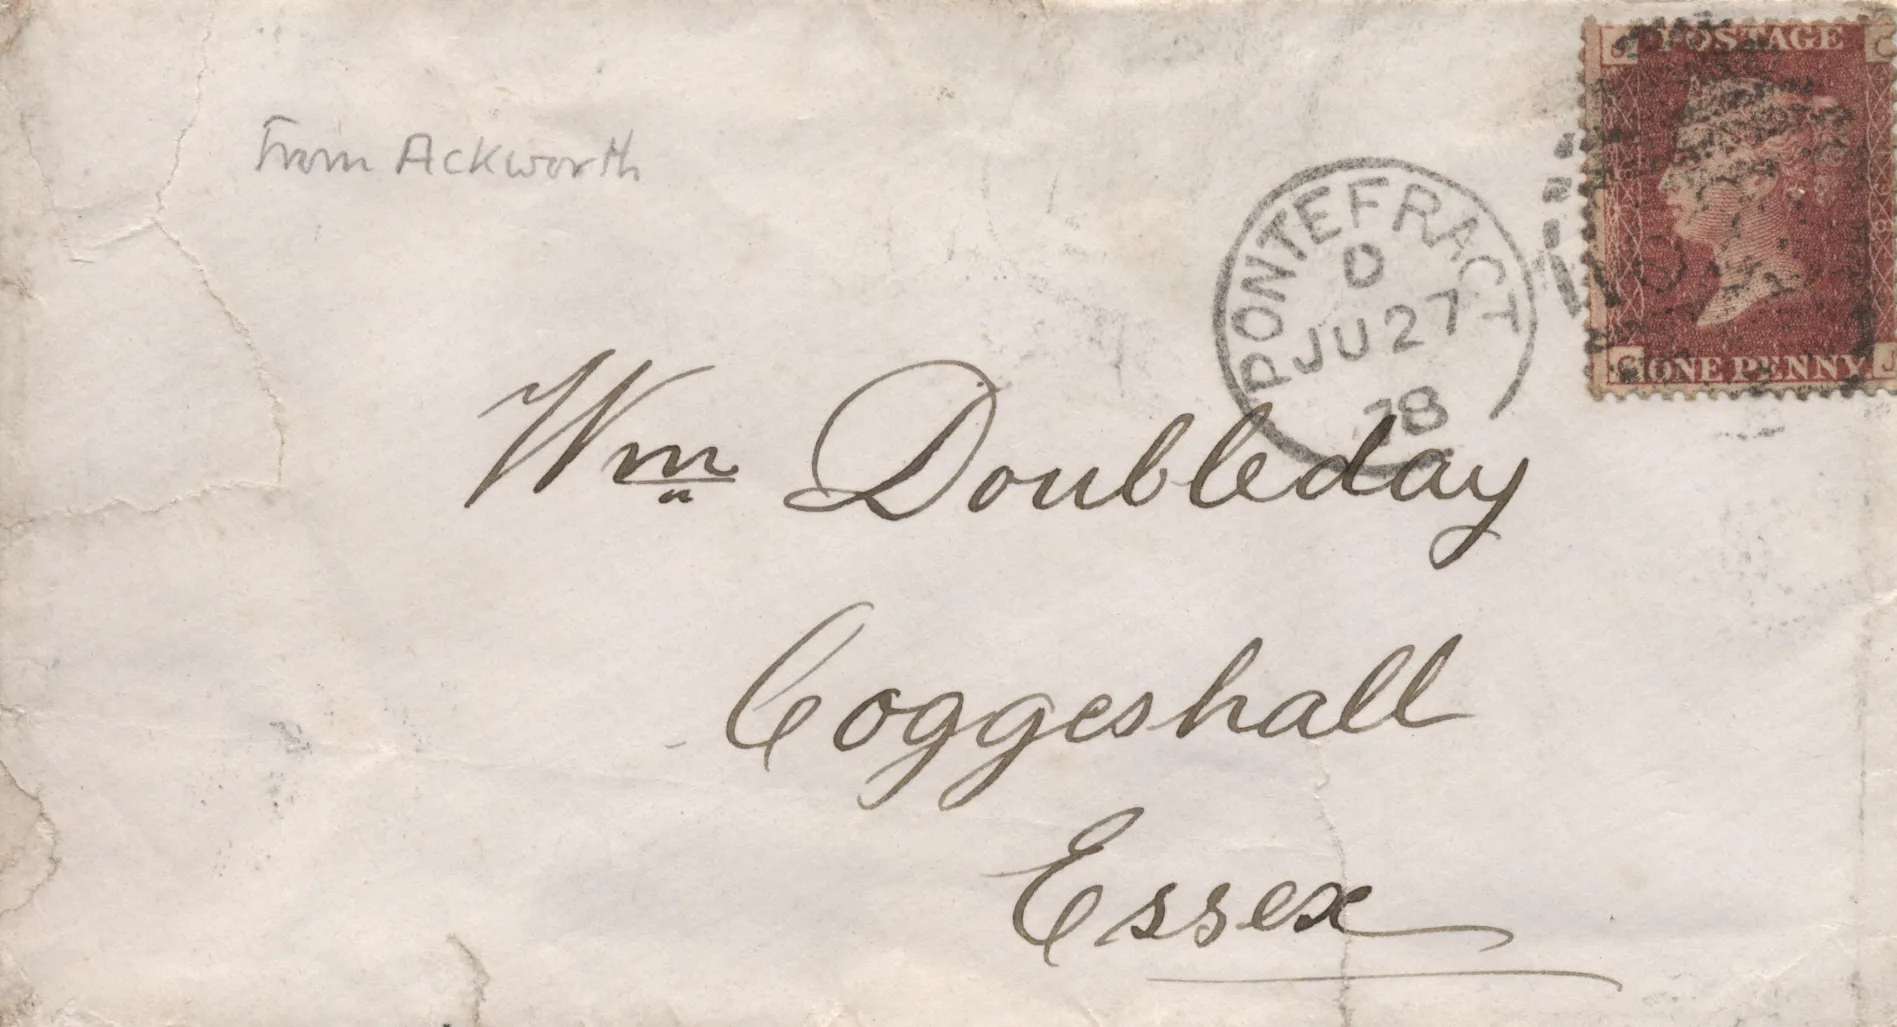 From Ackworth
POSTAGE
PONTEFRACT
D
JU 27
78
ONE PENNY
Wm Doubleday
Coggeshall
Essex